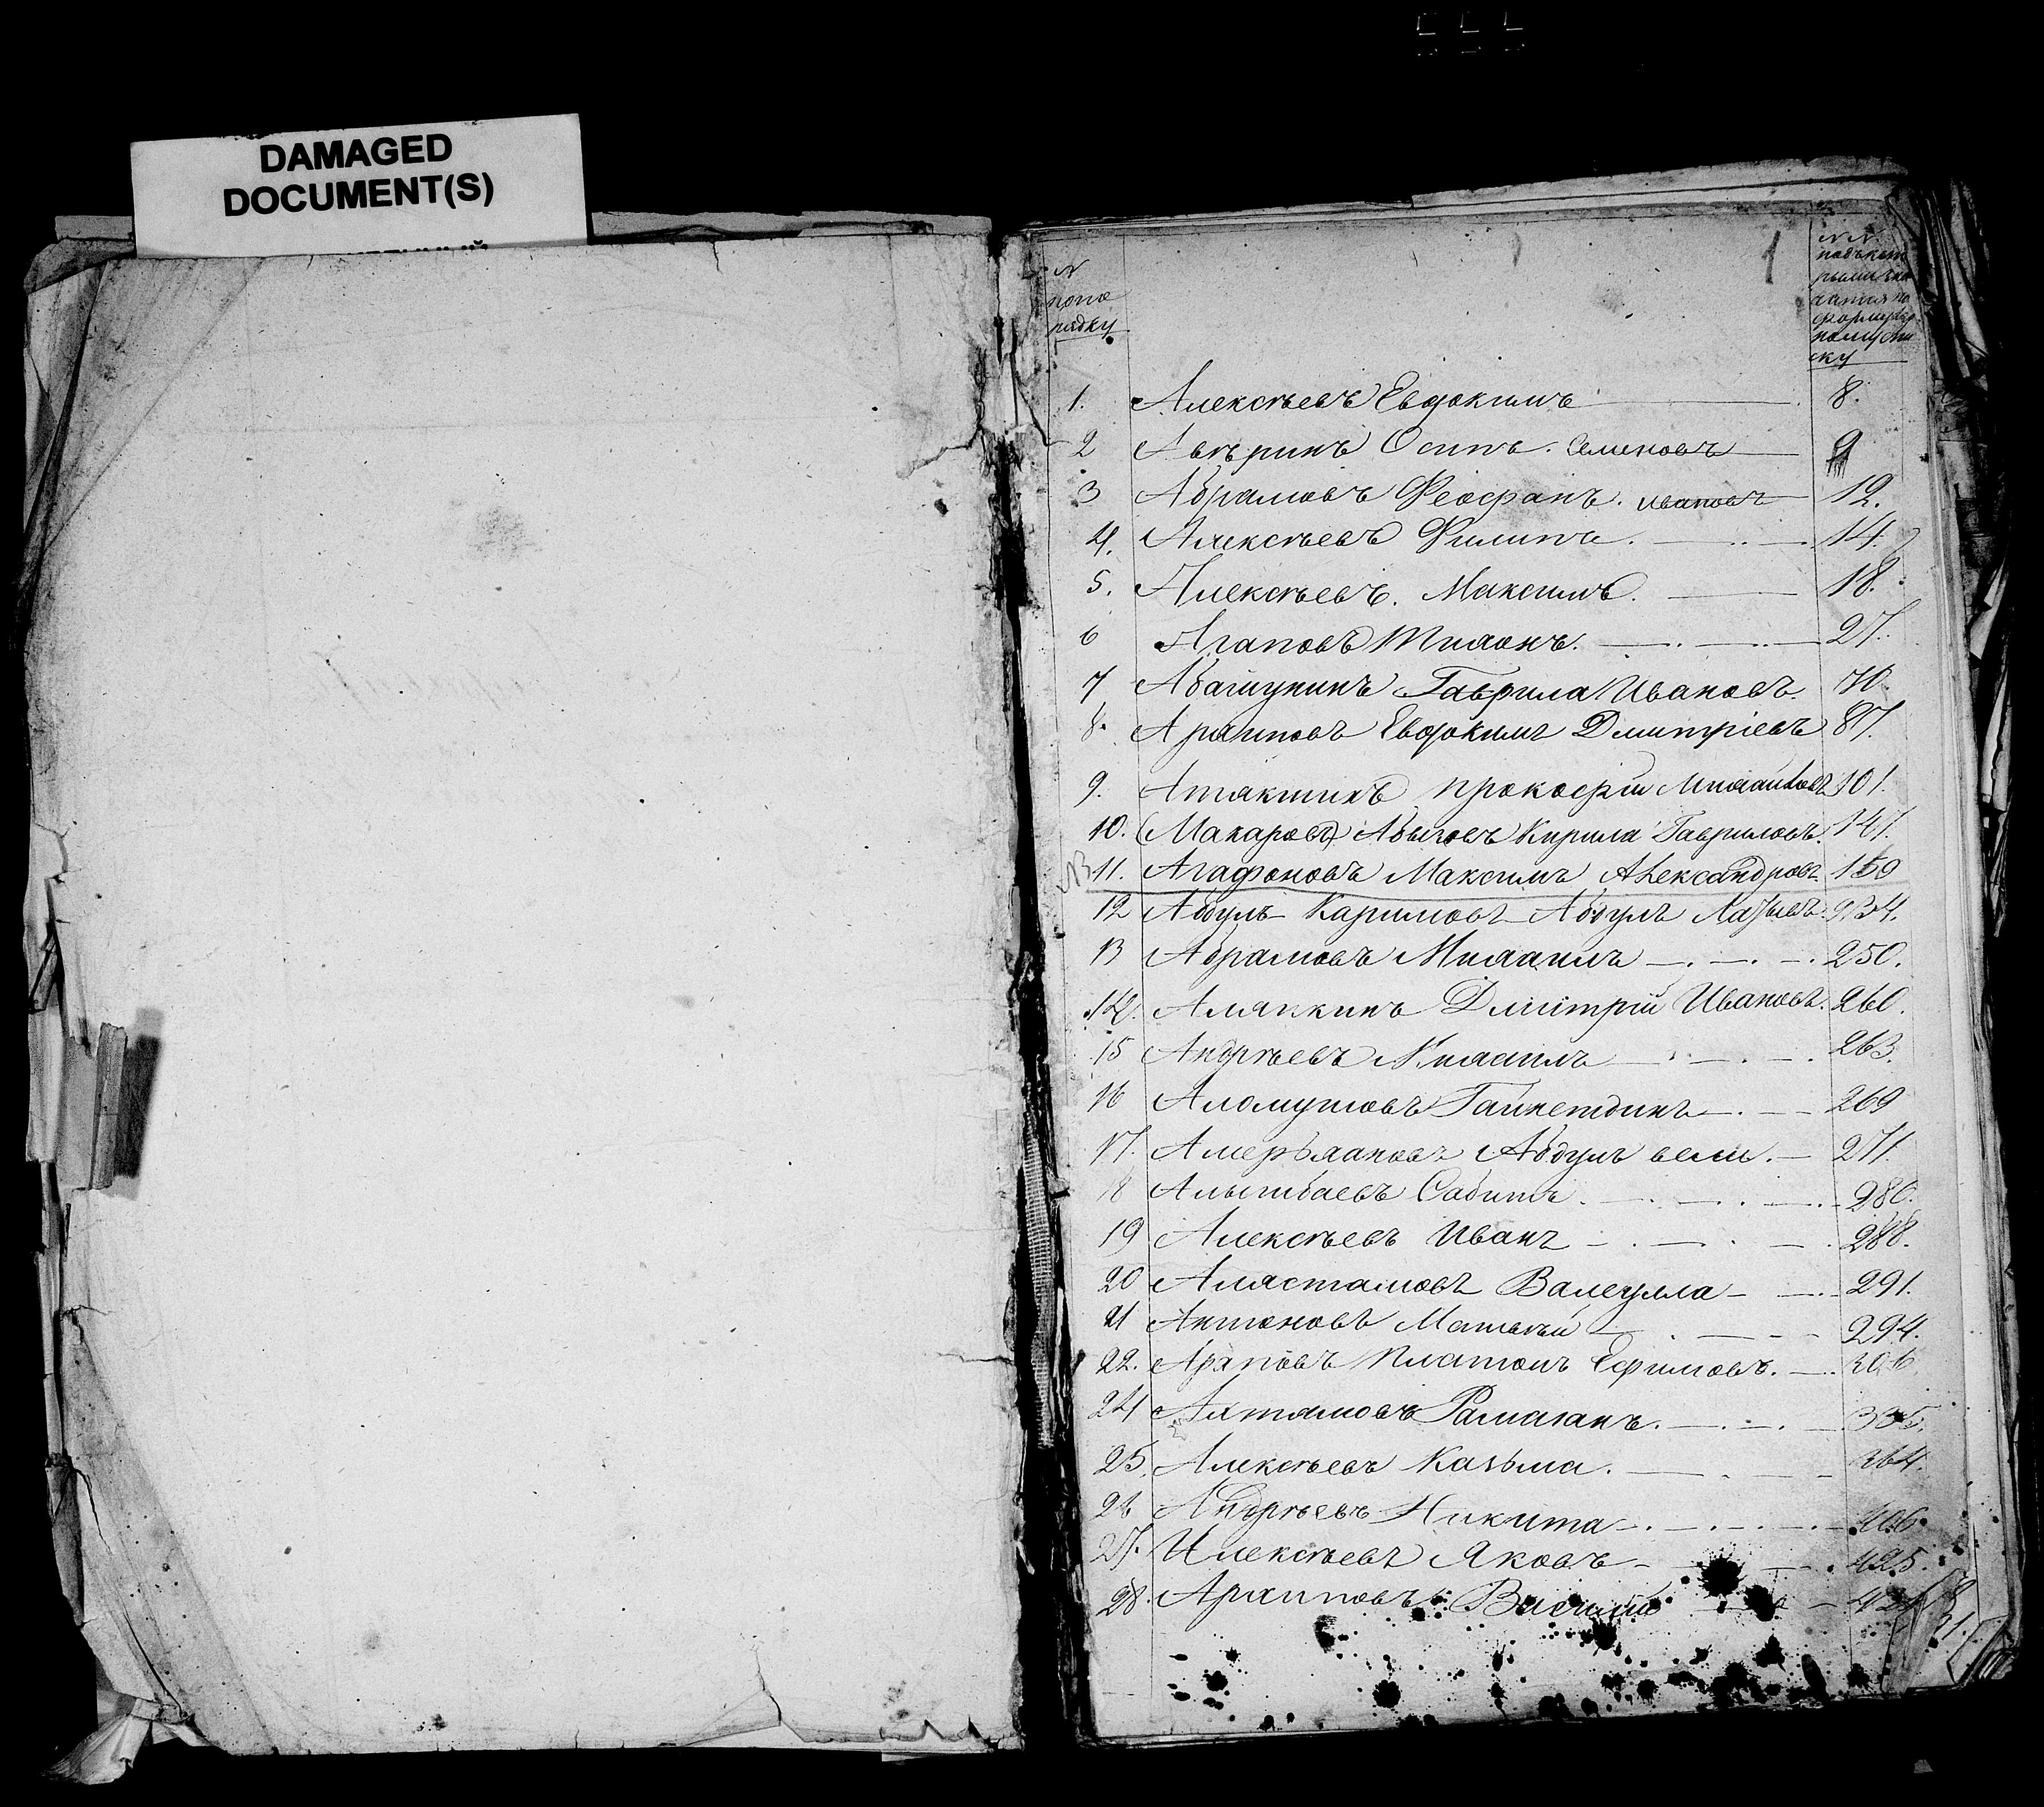 DAMAGED
DOCUMENT(S)
1
N
по по
рядку
NN
подъ кото
рыми зна
чатся по
формуляр
ному спи
ску
1. Алексѣевъ Евдокимъ 8.
2 Авѣринъ Осипъ. Семеновъ 9
3 Абрамовъ Феофанъ. Ивановъ 12.
4. Алексѣевъ Филипъ. 14.
5. Алексѣевъ. Максимъ. 18.
6 Агаповъ Тихонъ. 27.
7 Абашунинъ Гаврила Ивановъ 70.
8. Архиповъ Евдокимъ Дмитріевъ 87.
9. Атакшинъ Прокофій Михайловъ 101.
10. (Макаровъ) Абызовъ Кирила Гавриловъ. 147.
NB 11. Агафоновъ Максимъ Александровъ 150
12 Абдулъ Каримовъ Абдулъ 234.
13 Абрамовъ Михаилъ 250.
14. Аляпкинъ Дмитрій Ивановъ. 260.
15 Андрѣевъ Михаилъ 263.
16 Гайнетдинъ 269
17. Амерхановъ Абдулъ вели. 271.
18 Сабитъ. 280.
19 Алексѣевъ Иванъ 288.
20 Аластамовъ Валеулла 291.
21 Антоновъ Матвѣй 294.
22. Араповъ Платонъ Ефимовъ. 306
24 Ахтямовъ Рамазанъ. 335.
25. Алексѣевъ Казьма. 364.
26 Андрѣевъ Никита 406.
27. Алексѣевъ Яковъ 425.
28. Архиповъ Василій